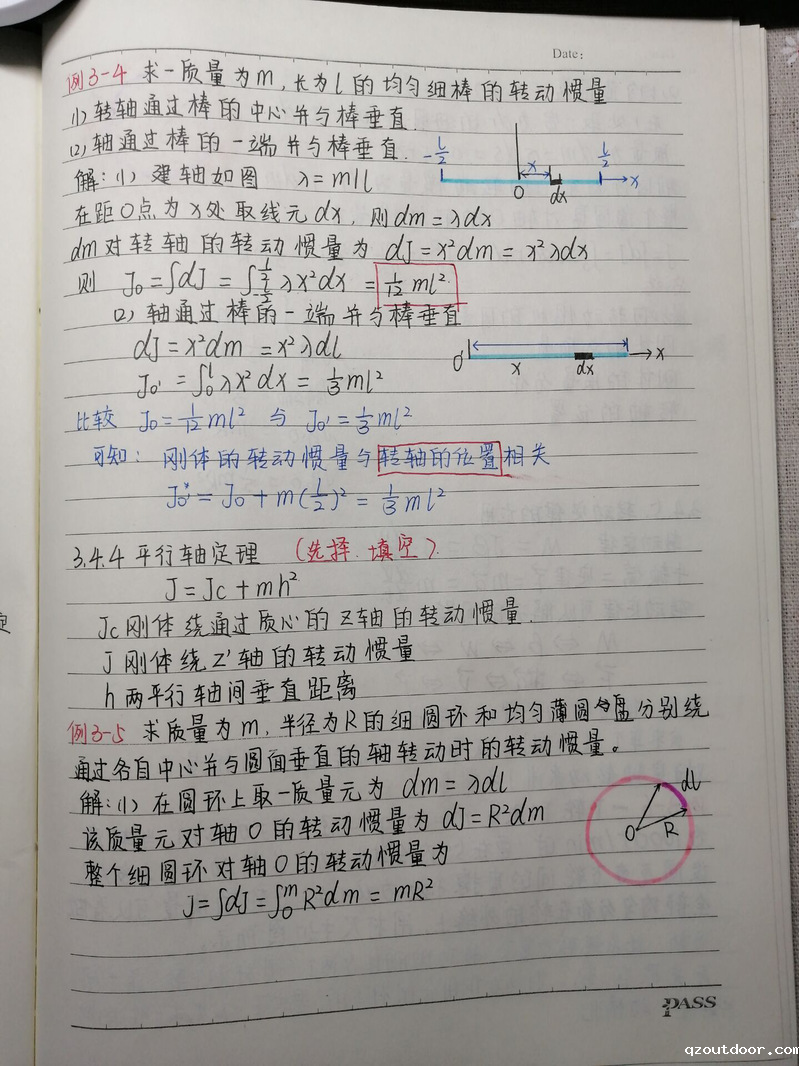 Date:
例3-4 求一质量为m,长为l的均匀细棒的转动惯量
(1)转轴通过棒的中心并与棒垂直.
(2)轴通过棒的一端并与棒垂直.
-l/2 x l/2
O dx x
解:(1)建轴如图 λ=m/l
在距O点为x处取线元dx,则dm=λdx
dm对转轴的转动惯量为 dJ=x²dm=x²λdx
则 J₀=∫dJ=∫_{-l/2}^{l/2}λx²dx=1/12 ml²
(2)轴通过棒的一端并与棒垂直
dJ=x²dm=x²λdl
O' x dx x
J₀'=∫₀^l λx²dx=1/3 ml²
比较 J₀=1/12 ml² 与 J₀'=1/3 ml²
可知: 刚体的转动惯量与转轴的位置相关
J₀*=J₀+m(l/2)²=1/3 ml²
3.4.4 平行轴定理 (选择.填空).
J=Jc+mh²
Jc刚体绕通过质心的Z轴的转动惯量.
J刚体绕Z'轴的转动惯量
h两平行轴间垂直距离
例3-5 求质量为m,半径为R的细圆环和均匀薄圆盘分别绕
通过各自中心并与圆面垂直的轴转动时的转动惯量。
解:(1)在圆环上取一质量元为 dm=λdl
该质量元对轴O的转动惯量为dJ=R²dm
整个细圆环对轴O的转动惯量为
J=∫dJ=∫₀^m R²dm=mR²
dl
O R
PASS
qzoutdoor.com